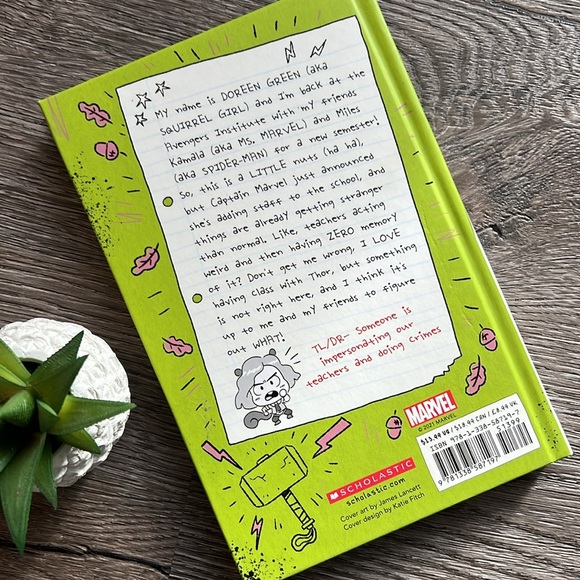 My name is DOREEN GREEN (aka
SQUIRREL GIRL) and I'm back at the
Avengers Institute with my friends
Kamala (aka MS. MARVEL) and Miles
(aka SPIDER-MAN) for a new semester!
So, this is a LITTLE nuts (ha ha),
but Captain Marvel just announced
she's adding staff to the school, and
things are already getting stranger
than normal. Like, teachers acting
weird and then having ZERO memory
of it? Don't get me wrong, I LOVE
having class with Thor, but something
is not right here, and I think it's
up to me and my friends to figure
out WHAT!
TL/DR- Someone is
impersonating our
teachers and doing crimes
MARVEL
© 2021 MARVEL
$13.99 US / $18.99 CAN / £8.99 UK
ISBN 978-1-338-58719-7
51399
9 781338 587197
SCHOLASTIC
scholastic.com
Cover art by James Lancett
Cover design by Katie Fitch